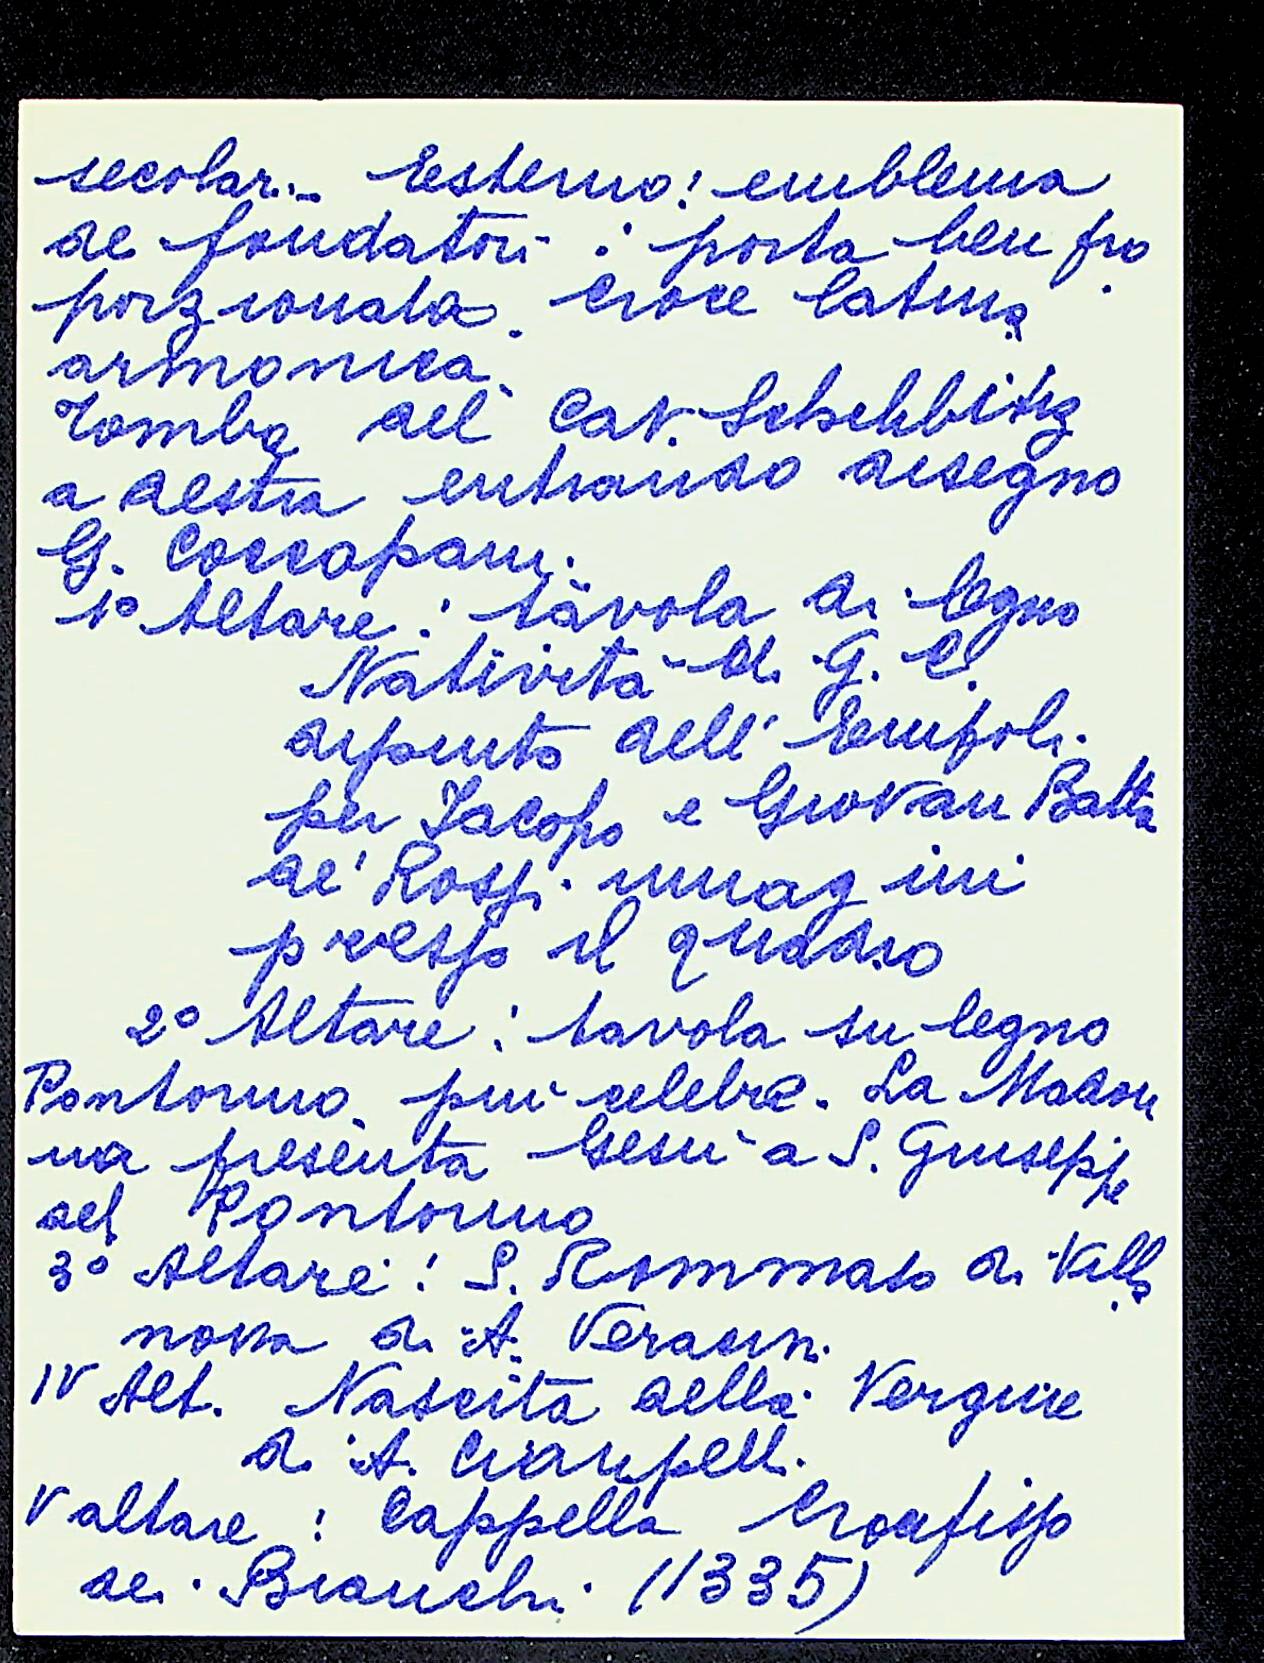 secolari. Esterno: emblema
de fondatori: porta ben pro
porzionata. Croce latina
armonica.
Tomba del Cav.
a destra entrando disegno
G. Coccapani.
1° Altare: tavola di legno
Natività di G. C.
dipinto dell'Empoli
per Jacopo e Giovan Batta
de' Rossi immagini
presso il quadro
2° Altare: tavola su legno
Pontormo più celebre. La Madon
na presenta Gesù a S. Giuseppe
del Pontormo
3° Altare: S. Tommaso di Villa
nova di A. Veracini
IV Alt. Nascita della Vergine
di A. Ciampelli.
V altare: Cappella Crocifisso
dei Bianchi (1335)